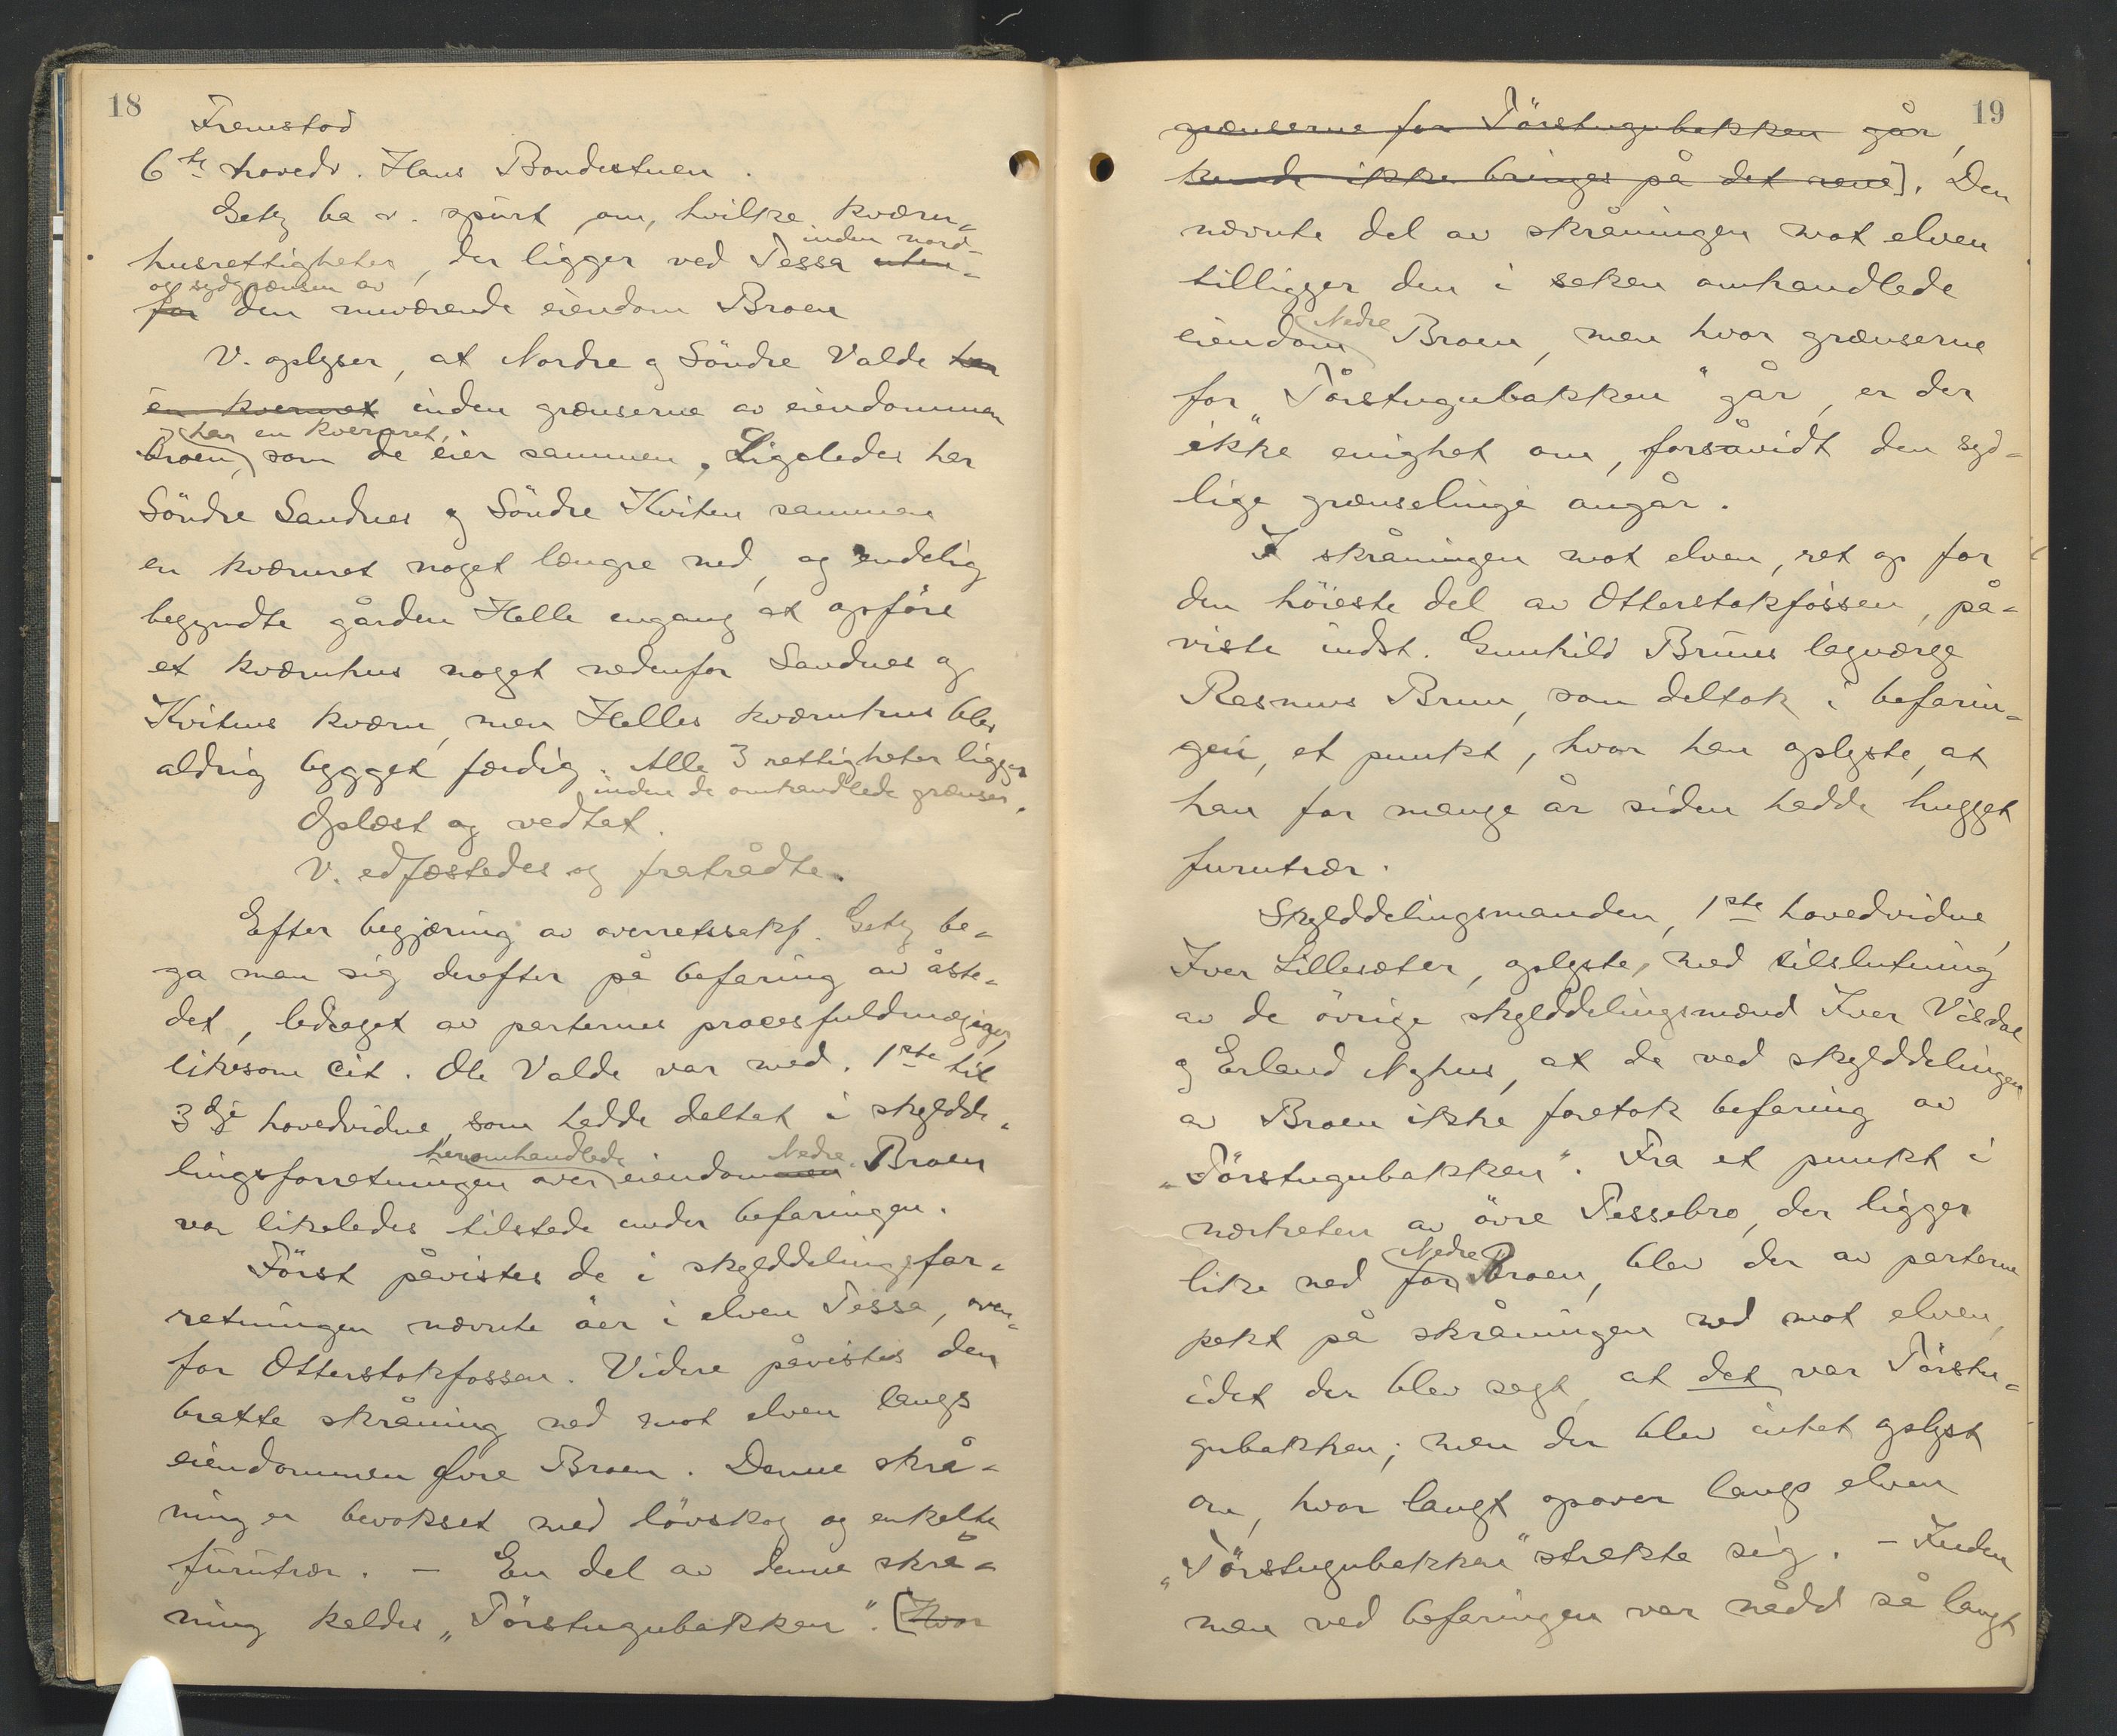 18
Fremstod
6te hovedv. Hans Bondestuen.
Getz ba v. spurt om, hvilke kværn-
inden nord-
husrettigheter, der ligger ved Tessa uten-
og sydgrænsen av
for den nuværende eiendom Broen
V. oplyser, at Nordre og Söndre Valde har
en kvernret inden grænserne av eiendommen
har en kvernret,
Broen, som de eier sammen. Ligeledes har
Söndre Sandnes og Söndre Kviten sammen
en kværnret noget længre ned, og endelig
begyndte gården Helle engang at opføre
et kværnhus noget nedenfor Sandnes og
Kvitens kværn, men Helles kværnhus blev
aldrig bygget færdig. Alle 3 rettigheter ligger
inden de omhandlede grænser.
Oplæst og vedtat.
V. edfæstedes og fratrådte.
Efter begjæring av overretssakf. Getz be-
ga man sig derefter på befaring av åste-
det, ledsaget av parternes procesfuldmægiger,
likesom cit. Ole Valde var med. 1ste til
3dje hovedvidne, som hadde deltat i skyldde-
heromhandlede Nedre
lingsforretningen over eiendommen Broen
var likeledes tilstede under befaringen.
Först påvistes de i skylddelingsfor-
retningen nævnte öer i elven Tessa, oven-
for Otterstokfossen. Videre påvistes den
bratte skråning ned mot elven langs
eiendommen Øvre Broen. Denne skrå-
ning er bevokset med lövskog og enkelte
furutrær. - En del av denne skrå-
ning kaldes „Törstugubakken". [Hvor
19
grænserne for Törstugubakken går,
kunde ikke bringes på det rene]. Den
nævnte del av skråningen mot elven
tilligger den i saken omhandlede
Nedre
eiendom Broen, men hvor grænserne
for „Törstugubakken" går, er der
ikke enighet om, forsåvidt den syd-
lige grænselinje angår.
I skråningen mot elven, ret op for
den höieste del av Otterstokfossen, på-
viste indst. Gunhild Bruns lagværge
Rasmus Brun, som deltok i befarin-
gen, et punkt, hvor han oplyste, at
han for mange år siden hadde hugget
furutrær.
Skylddelingsmanden, 1ste hovedvidne,
Iver Lillesæter, oplyste, med tilslutning
av de övrige skylddelingsmænd Iver Visdal
og Erland Nyhus, at de ved skylddelingen
av Broen ikke foretok befaring av
„Törstugubakken". Fra et punkt i
nærheten av övre Tessebro, der ligger
Nedre
like ned for Broen, blev der av parterne
pekt på skråningen ned mot elven,
idet der blev sagt, at det var Törstu-
gubakken; men der blev intet oplyst
om, hvor langt opover langs elven
„Törstugubakken" strakte sig. - Inden
man ved befaringen var nådd så langt